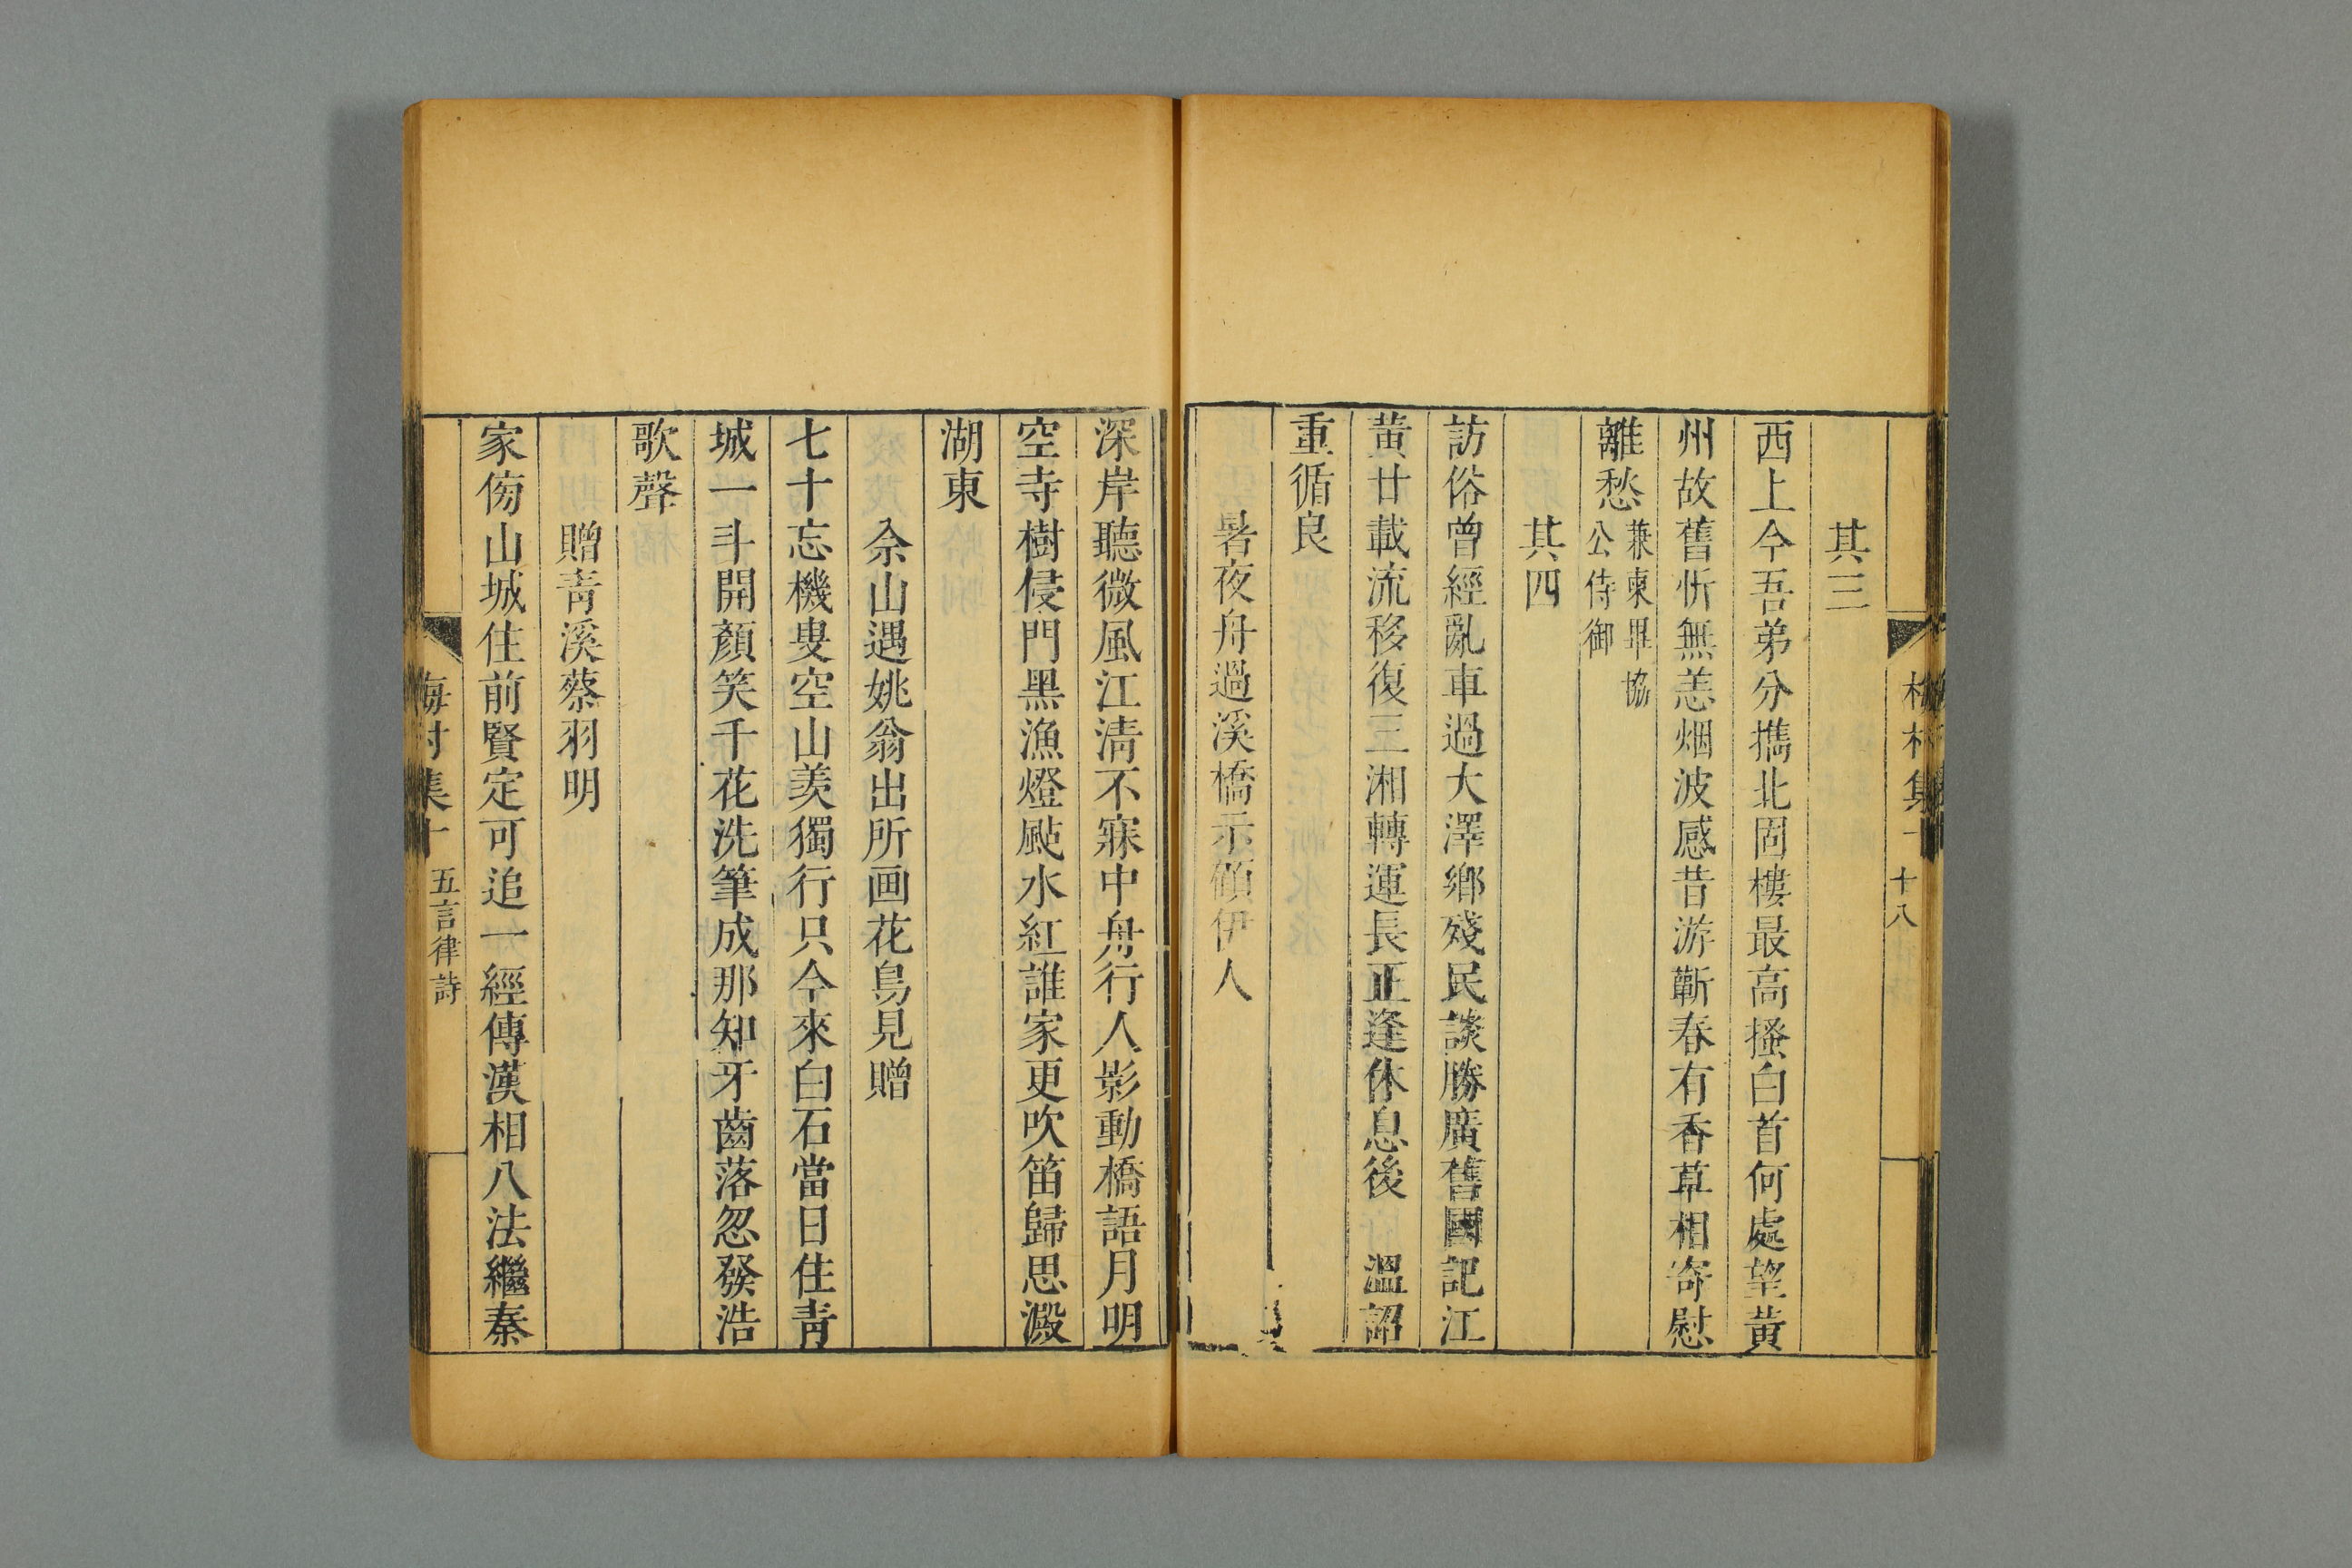 其三
西上今吾弟分擕北固樓最高搔白首何處望黃
州故舊忻無恙烟波感昔游蘄春有香草相寄慰
離愁兼柬畢協
公侍御
其四
訪俗曾經亂車過大澤鄉殘民談勝廣舊國記江
黃廿載流移復三湘轉運長正逢休息後 溫詔
重循良
暑夜舟過溪橋示顧伊人
深岸聽微風江淸不寐中舟行人影動橋語月明
空寺樹侵門黑漁燈颭水紅誰家更吹笛歸思澱
湖東
佘山遇姚翁出所画花鳥見贈
七十忘機叟空山羨獨行只今來白石當日住靑
城一斗開顏笑千花洗筆成那知牙齒落忽發浩
歌聲
贈靑溪蔡羽明
家傍山城住前賢定可追一經傳漢相八法繼秦
梅村集十 五言律詩
村集 十八